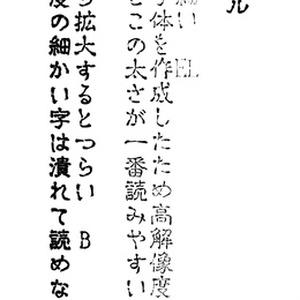 ル
細い EL
字体を作成したため高解像度
とこの太さが一番読みやすい
拡大するとつらい B
度の細かい字は潰れて読めな